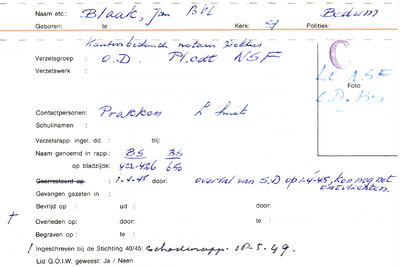 Naam etc.: Blaak, Jan BS Bedum
Geboren: te Kerk: Politiek:
Kantoorbediende notaris
Verzetsgroep: O.D. NSF
Verzetswerk:
L.O. NSF
Foto
O.D. BS
Contactpersonen: Prakken L Smit
Schuilnamen:
Verzetsrapp. ingel. dd.: bij:
Naam genoemd in rapp.: BS BS
op bladzijde: 422-426 650
Gearresteerd op: 1-4-45 door: overval van S.D op 1-4-45, kon nog net ontvluchten.
Gevangen gezeten in:
Bevrijd op: uit: door:
Overleden op: door: te:
Begraven op: te:
Ingeschreven bij de Stichting 40/45: schaderapp. 10-5-49.
Lid G.O.I.W. geweest: Ja / Neen